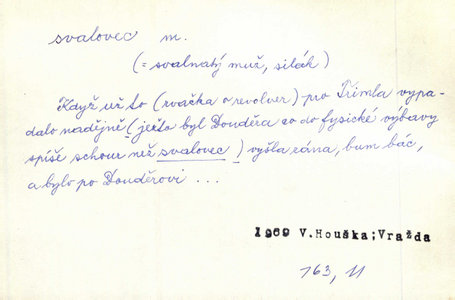 svalovec m.
(= svalnatý muž, silák)
Když už to (rvačka o revolver) pro Trimla vypa-
dalo nadějně (ježto byl Donděra co do fysické výbavy
spíše schour než svalovec) vyšla rána, bum bác,
a bylo po Donděrovi ...
1969 V.Houška;Vražda
163, 11